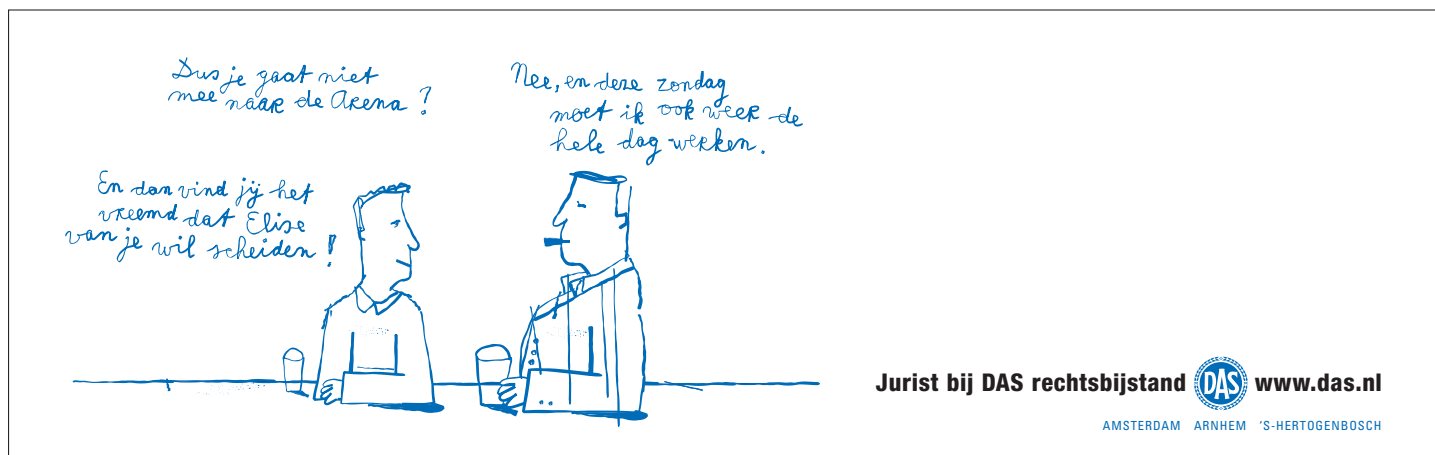 Dus je gaat niet
mee naar de Arena?
Nee, en deze zondag
moet ik ook weer de
hele dag werken.
En dan vind jij het
vreemd dat Elise
van je wil scheiden!
Jurist bij DAS rechtsbijstand DAS www.das.nl
AMSTERDAM ARNHEM 'S-HERTOGENBOSCH